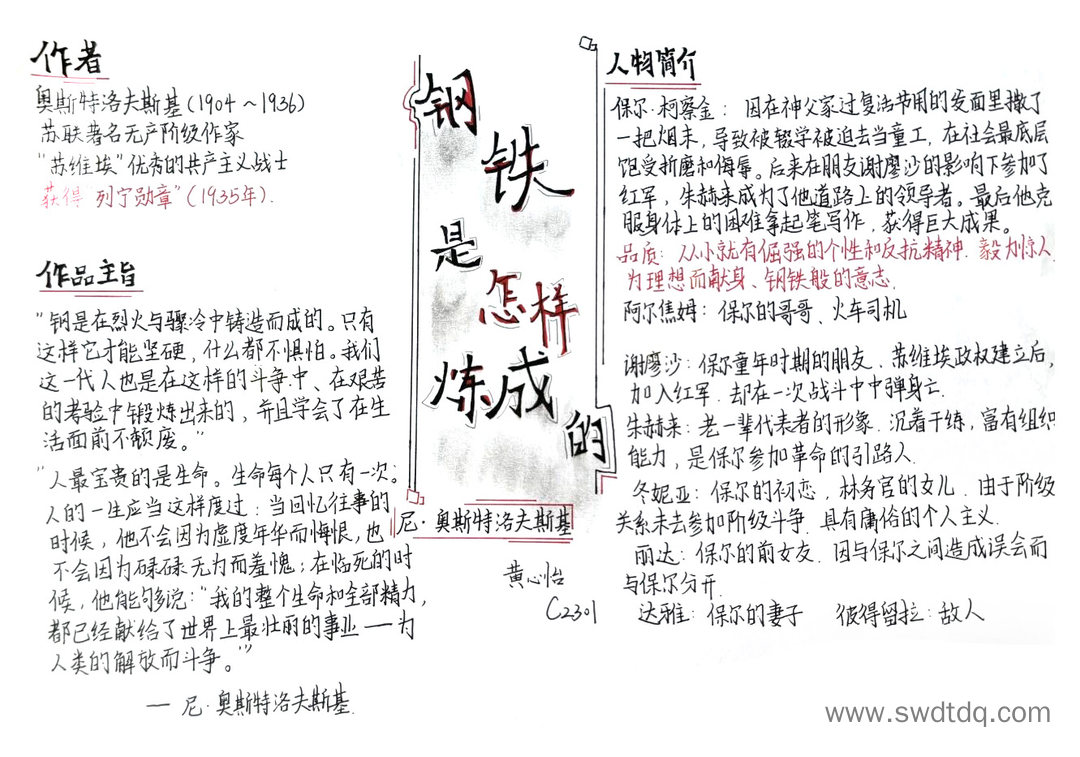 作者
奥斯特洛夫斯基(1904~1936)
苏联著名无产阶级作家
"苏维埃"优秀的共产主义战士
获得"列宁勋章"(1935年).
作品主旨
"钢是在烈火与骤冷中铸造而成的。只有
这样它才能坚硬，什么都不惧怕。我们
这一代人也是在这样的斗争中、在艰苦
的考验中锻炼出来的，并且学会了在生
活面前不颓废。"
"人最宝贵的是生命。生命每个人只有一次。
人的一生应当这样度过：当回忆往事的
时候，他不会因为虚度年华而悔恨，也
不会因为碌碌无为而羞愧；在临死的时
候，他能够说："我的整个生命和全部精力，
都已经献给了世界上最壮丽的事业——为
人类的解放而斗争。'"
— 尼·奥斯特洛夫斯基.
钢
铁
是
怎样
炼成
的
尼·奥斯特洛夫斯基
黄心怡
C2301
人物简介
保尔·柯察金：因在神父家过复活节用的发面里撒了
一把烟末，导致被辍学被迫去当童工，在社会最底层
饱受折磨和侮辱。后来在朋友谢廖沙的影响下参加了
红军，朱赫来成为了他道路上的领导者。最后他克
服身体上的困难拿起笔写作，获得巨大成果。
品质：从小就有倔强的个性和反抗精神.毅力惊人.
为理想而献身、钢铁般的意志.
阿尔焦姆：保尔的哥哥、火车司机
谢廖沙：保尔童年时期的朋友.苏维埃政权建立后，
加入红军.却在一次战斗中中弹身亡.
朱赫来：老一辈代表者的形象.沉着干练，富有组织
能力，是保尔参加革命的引路人.
冬妮亚：保尔的初恋，林务官的女儿.由于阶级
关系未去参加阶级斗争.具有庸俗的个人主义.
丽达：保尔的前女友.因与保尔之间造成误会而
与保尔分开.
达雅：保尔的妻子 彼得留拉：敌人
www.swdtdq.com